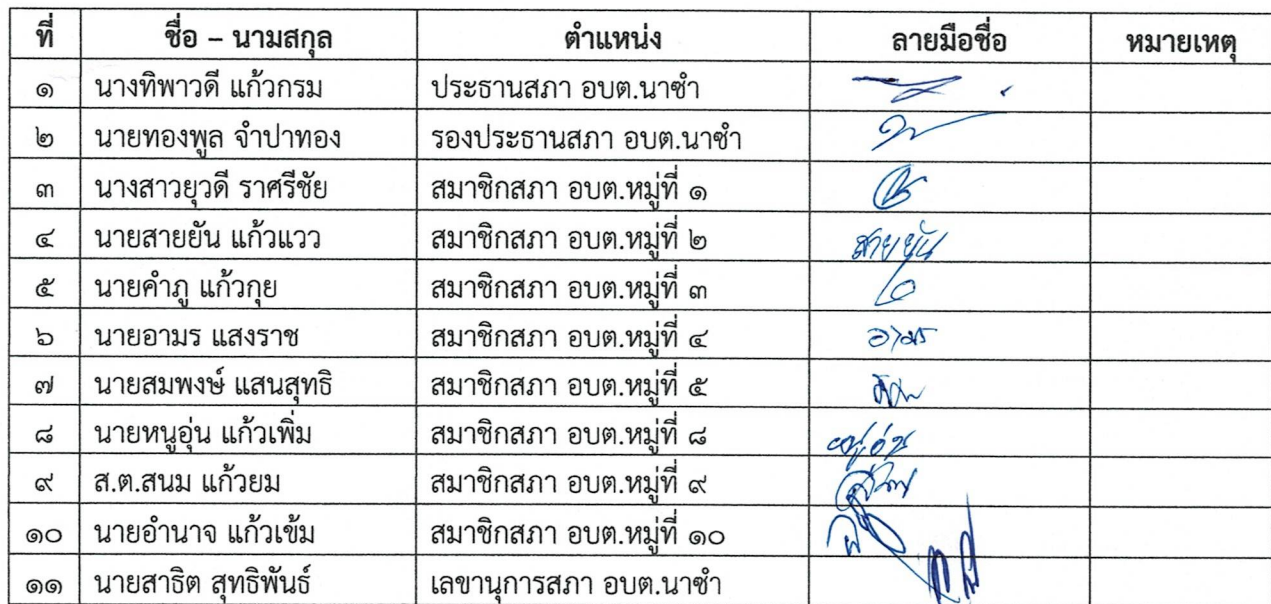 ที่ ชื่อ – นามสกุล ตำแหน่ง ลายมือชื่อ หมายเหตุ
๑ นางทิพาวดี แก้วกรม ประธานสภา อบต.นาซำ
๒ นายทองพูล จำปาทอง รองประธานสภา อบต.นาซำ
๓ นางสาวยุวดี ราศรีชัย สมาชิกสภา อบต.หมู่ที่ ๑
๔ นายสายยัน แก้วแวว สมาชิกสภา อบต.หมู่ที่ ๒ สายยัน
๕ นายคำภู แก้วกุย สมาชิกสภา อบต.หมู่ที่ ๓
๖ นายอามร แสงราช สมาชิกสภา อบต.หมู่ที่ ๔ อามร
๗ นายสมพงษ์ แสนสุทธิ สมาชิกสภา อบต.หมู่ที่ ๕
๘ นายหนูอุ่น แก้วเพิ่ม สมาชิกสภา อบต.หมู่ที่ ๘ หนูอุ่น
๙ ส.ต.สนม แก้วยม สมาชิกสภา อบต.หมู่ที่ ๙
๑๐ นายอำนาจ แก้วเข้ม สมาชิกสภา อบต.หมู่ที่ ๑๐
๑๑ นายสาธิต สุทธิพันธ์ เลขานุการสภา อบต.นาซำ